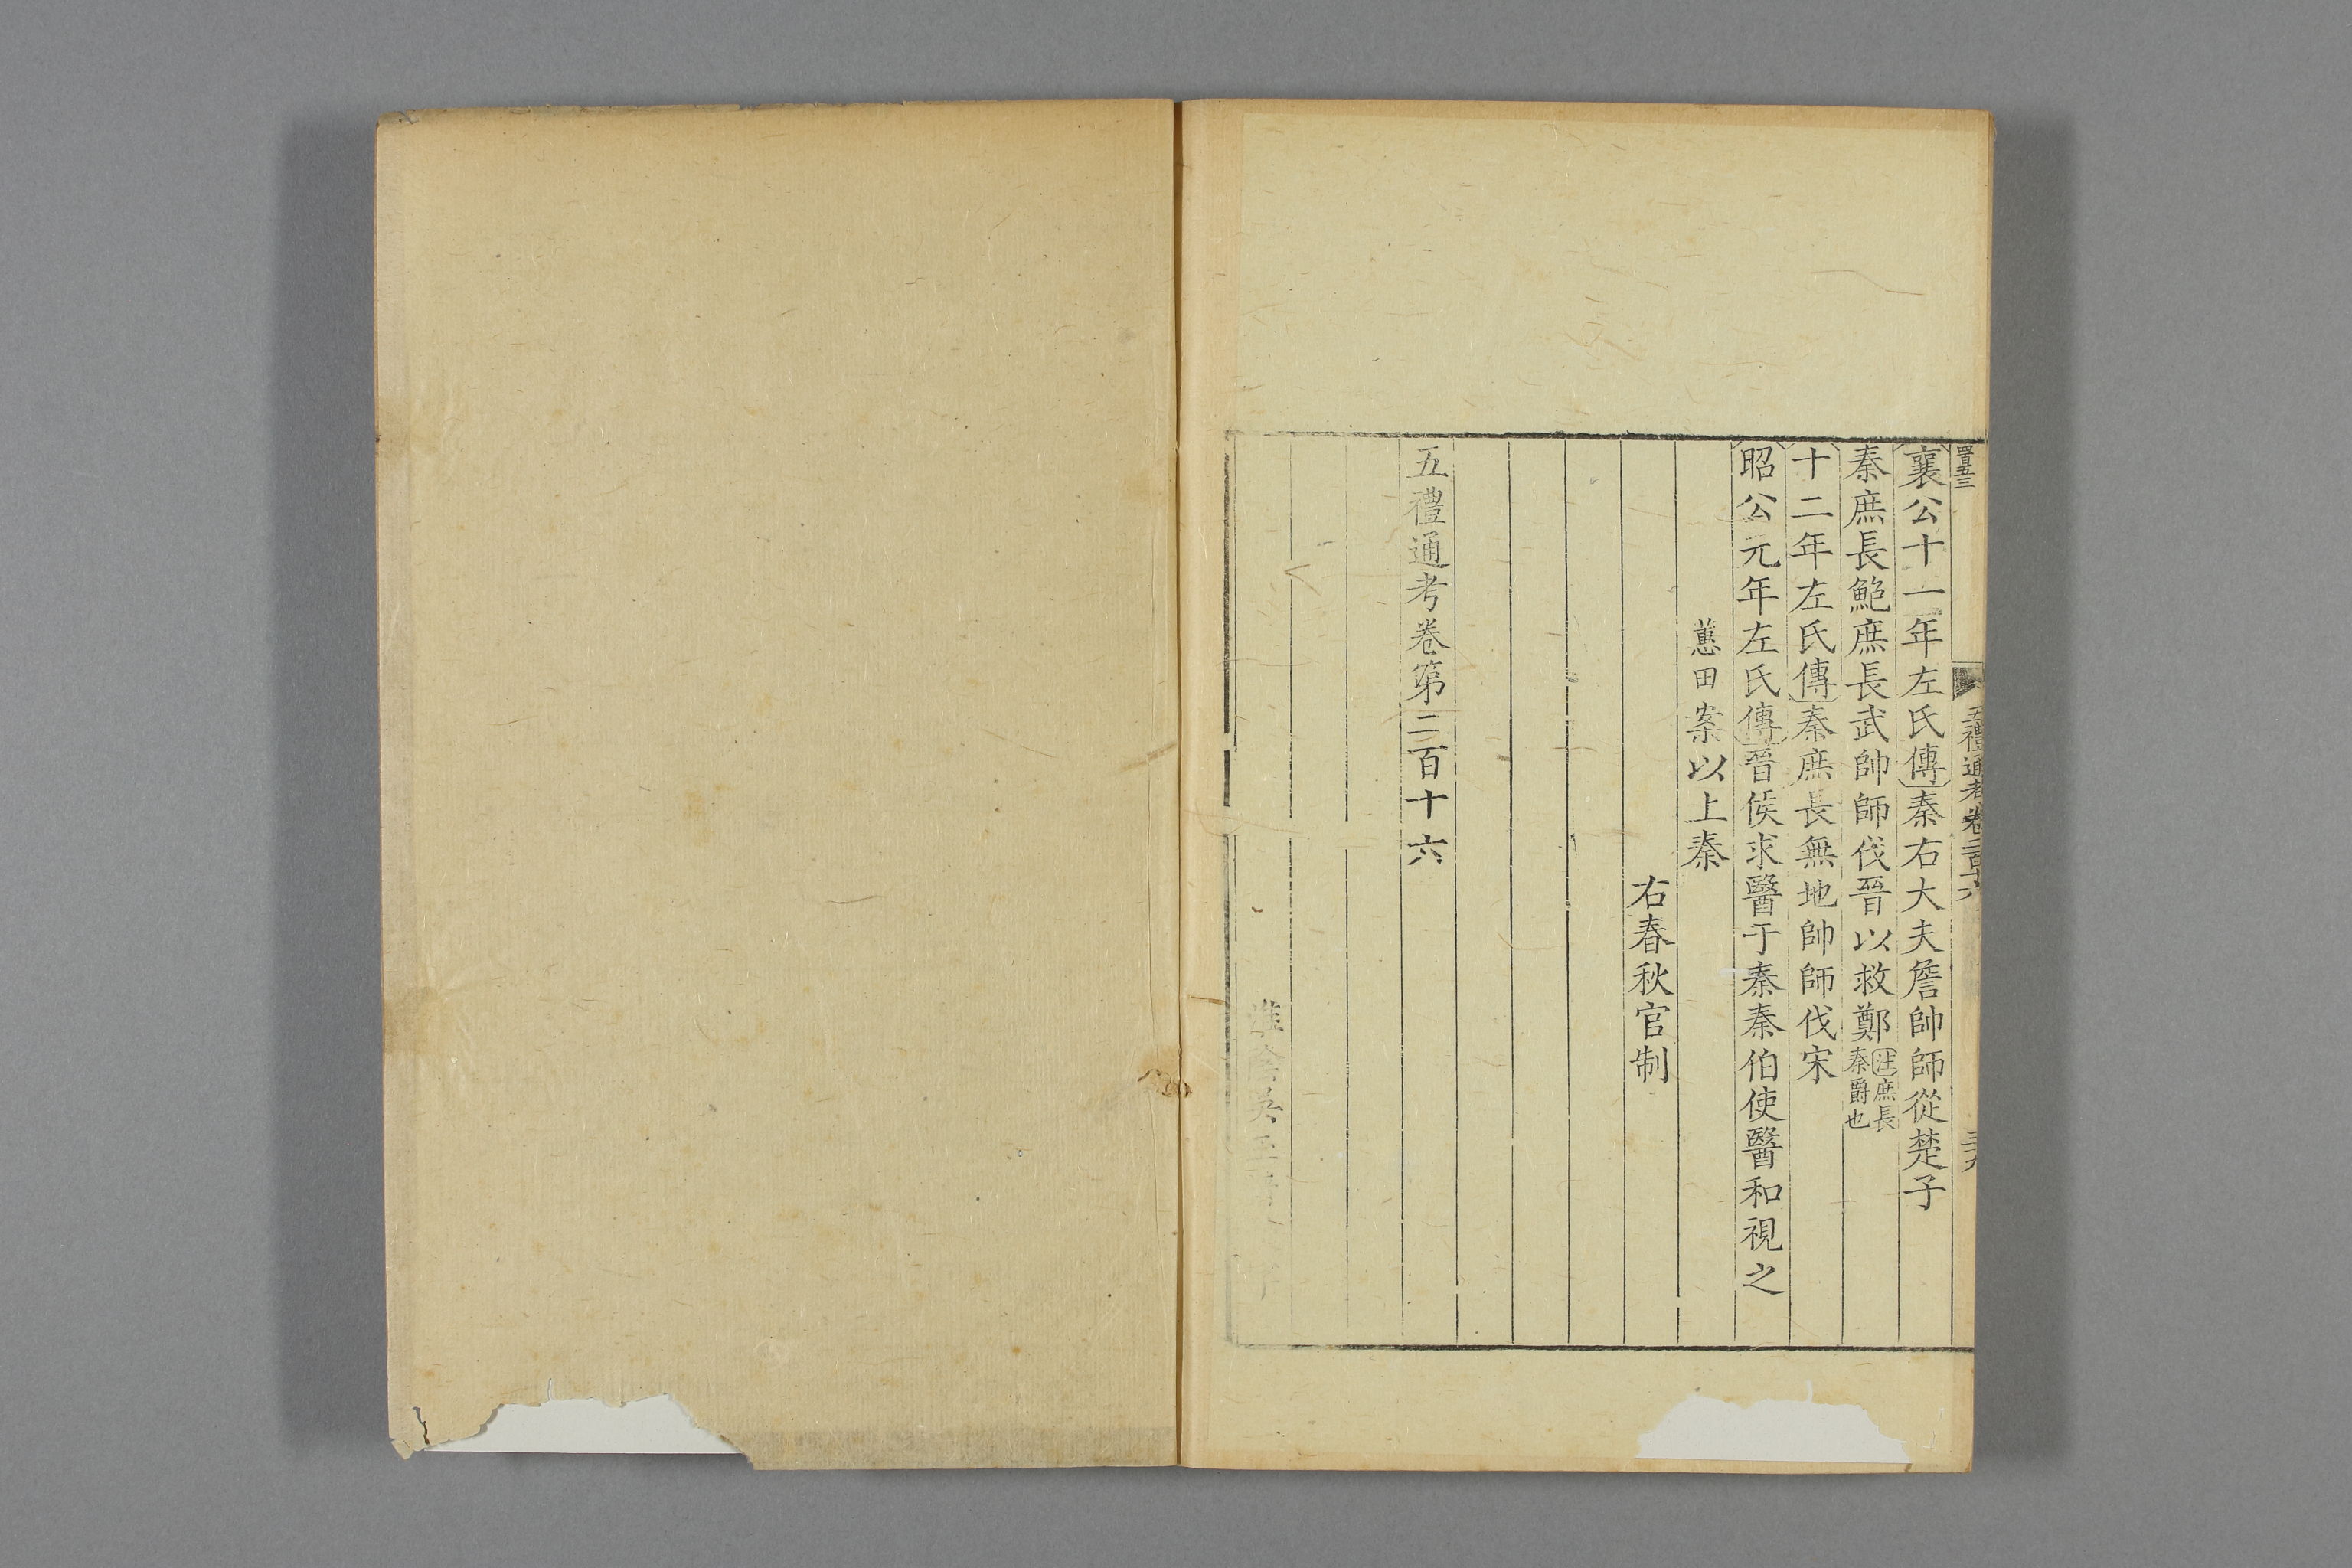 五禮通考卷二百十六
襄公十一年左氏傳秦右大夫詹帥師從楚子
秦庶長鮑庶長武帥師伐晉以救鄭注庶長秦爵也
十二年左氏傳秦庶長無地帥師伐宋
昭公元年左氏傳晉侯求醫于秦秦伯使醫和視之
蕙田案以上秦
右春秋官制
五禮通考卷第二百十六
淮陰吳玉搢